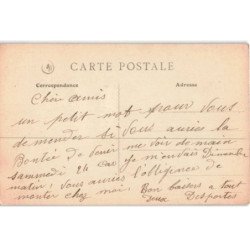 CARTE POSTALE
Correspondance
Adresse
Cher amis
un petit mot pour vous
demander si vous auriez la
Bontée de venir me voir demain
sammedi 24 Car je m'envais Dimanche
matin; vous auriez l'obligence de
monter chez moi; Bon baisers a tout
deux Desportes